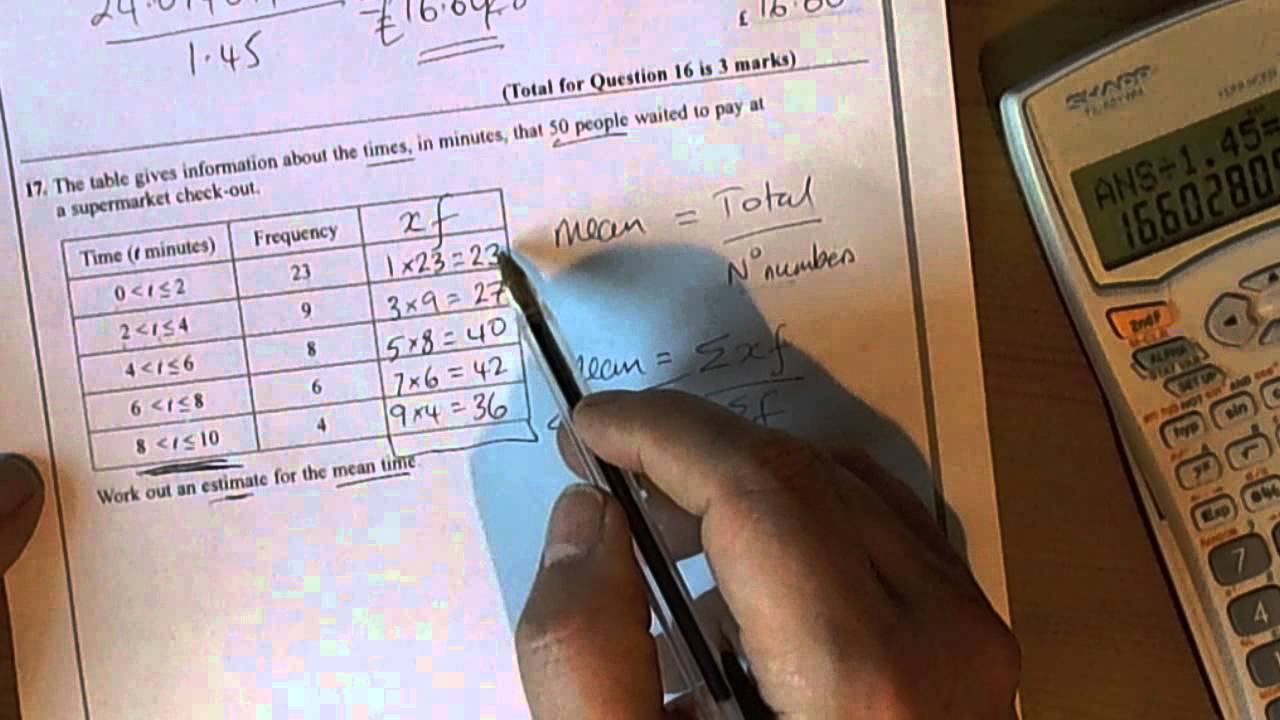 1.45
(Total for Question 16 is 3 marks)
17. The table gives information about the times, in minutes, that 50 people waited to pay at
a supermarket check-out.
Time (t minutes) Frequency xf
0 < t ≤ 2 23 1 × 23 = 23
2 < t ≤ 4 9 3 × 9 = 27
4 < t ≤ 6 8 5 × 8 = 40
6 < t ≤ 8 6 7 × 6 = 42
8 < t ≤ 10 4 9 × 4 = 36
Work out an estimate for the mean time.
mean = Total
Nº numbers
mean = Σxf
Σf
SHARP
ANS÷1.45=
16.60280
2ndF
ALPHA
SET UP
hyp
sin
Exp
7
4